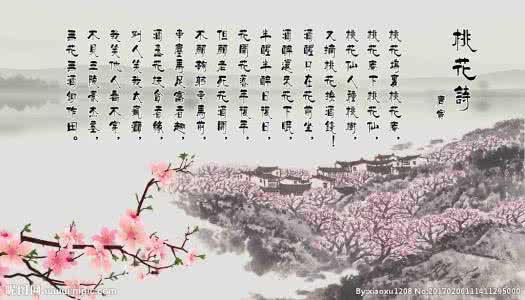 桃花詩
唐寅
桃花塢裏桃花庵，
桃花庵下桃花仙，
桃花仙人種桃樹，
又摘桃花換酒錢！
酒醒只在花前坐，
酒醉還來花下眠，
半醒半醉日復日，
花開花落年復年。
但願老死花酒間，
不願鞠躬車馬前，
車塵馬足富者趣，
酒盞花枝貧者緣，
別人笑我太瘋癲，
我笑他人看不穿，
不見五陵豪杰墓，
無花無酒鋤作田。
昵图网 www.nipic.com
By:xiaoxu1208 No:20170206111411295000